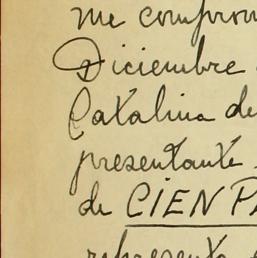 me comprom
Diciembre
Catalina de
presentante
de CIEN PA
representa